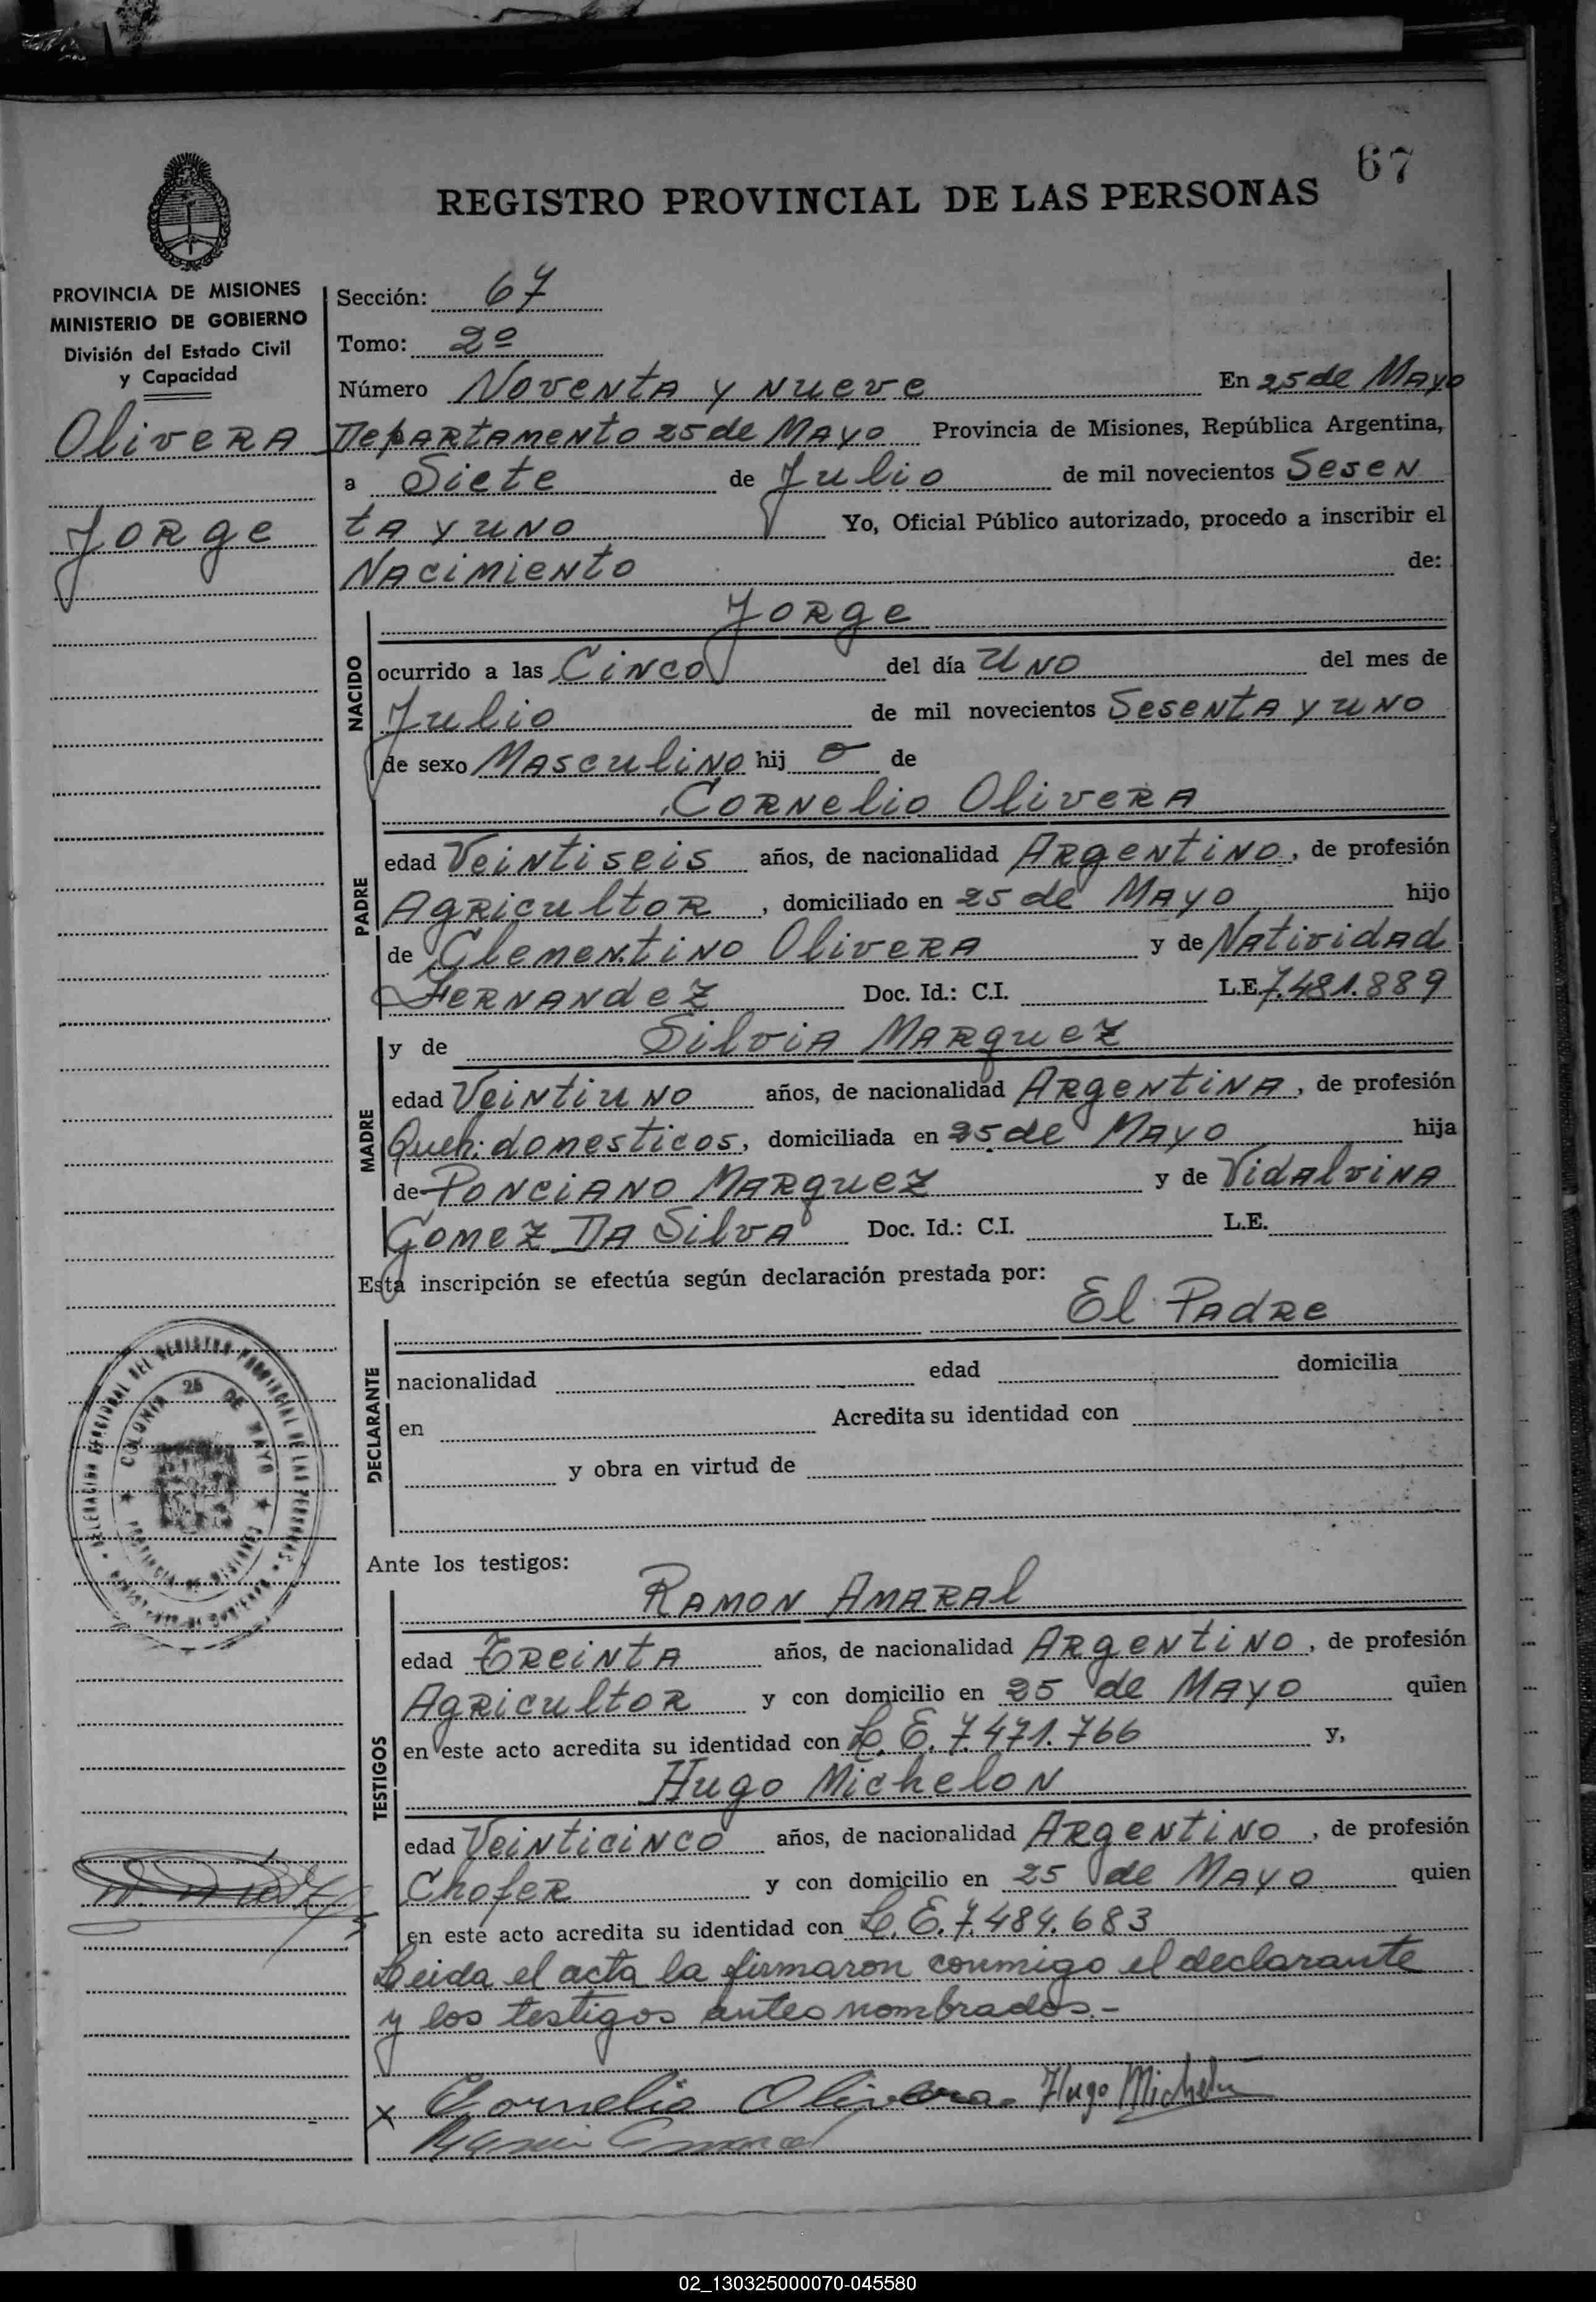 67
REGISTRO PROVINCIAL DE LAS PERSONAS
PROVINCIA DE MISIONES
MINISTERIO DE GOBIERNO
División del Estado Civil
y Capacidad
Olivera
Jorge
Sección: 67
Tomo: 2º
Número Noventa y nueve En 25 de Mayo
Departamento 25 de Mayo Provincia de Misiones, República Argentina,
a Siete de Julio de mil novecientos Sesen
ta y uno Yo, Oficial Público autorizado, procedo a inscribir el
Nacimiento de:
NACIDO
Jorge
ocurrido a las Cinco del día Uno del mes de
Julio de mil novecientos Sesenta y uno
de sexo Masculino hij o de
PADRE
Cornelio Olivera
edad Veintiseis años, de nacionalidad Argentino, de profesión
Agricultor, domiciliado en 25 de Mayo hijo
de Clementino Olivera y de Natividad
Fernandez Doc. Id.: C.I. L.E. 7.481.889
MADRE
y de Silvia Marquez
edad Veintiuno años, de nacionalidad Argentina, de profesión
Queh. domesticos, domiciliada en 25 de Mayo hija
de Ponciano Marquez y de Vidalvina
Gomez Da Silva Doc. Id.: C.I. L.E.
Esta inscripción se efectúa según declaración prestada por:
El Padre
DECLARANTE
nacionalidad edad domicilia
en Acredita su identidad con
y obra en virtud de
DELEGACION SECCIONAL DEL REGISTRO PROVINCIAL DE LAS PERSONAS
COLONIA 25 DE MAYO
PROVINCIA DE MISIONES
Ante los testigos:
TESTIGOS
Ramon Amaral
edad Treinta años, de nacionalidad Argentino, de profesión
Agricultor y con domicilio en 25 de Mayo quien
en este acto acredita su identidad con L.E. 7.471.766 y,
Hugo Michelon
edad Veinticinco años, de nacionalidad Argentino, de profesión
Chofer y con domicilio en 25 de Mayo quien
en este acto acredita su identidad con L.E. 7.484.683
Leida el acta la firmaron conmigo el declarante
y los testigos antes nombrados.-
x Cornelio Olivera Hugo Michelon
02_130325000070-045580